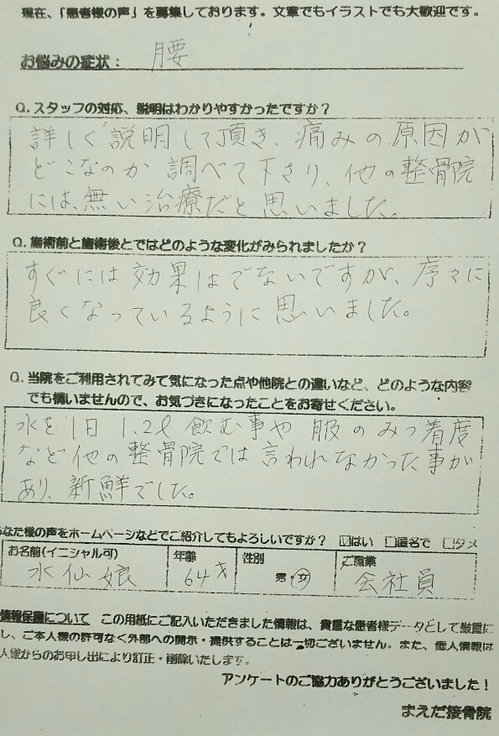 現在、「患者様の声」を募集しております。文章でもイラストでも大歓迎です。
お悩みの症状： 腰
Q. スタッフの対応、説明はわかりやすかったですか？
詳しく説明して頂き、痛みの原因が
どこなのか調べて下さり、他の整骨院
には、無い治療だと思いました。
Q. 施術前と施術後とではどのような変化がみられましたか？
すぐには効果はでないですが、序々に
良くなっているように思いました。
Q. 当院をご利用されてみて気になった点や他院との違いなど、どのような内容
でも構いませんので、お気づきになったことをお寄せください。
水を1日 1.2ℓ 飲む事や 服のみっ着度
など他の整骨院では言われなかった事が
あり、新鮮でした。
あなた様の声をホームページなどでご紹介してもよろしいですか？ ☑はい □匿名で □ダメ
お名前(イニシャル可) 年齢 性別 ご職業
水仙娘 64才 男・女 会社員
情報保護について この用紙にご記入いただきました情報は、貴重な患者様データとして厳重に
し、ご本人様の許可なく外部への開示・提供することは一切ございません。また、個人情報は
人様からのお申し出により訂正・削除いたします。
アンケートのご協力ありがとうございました！
まえだ接骨院